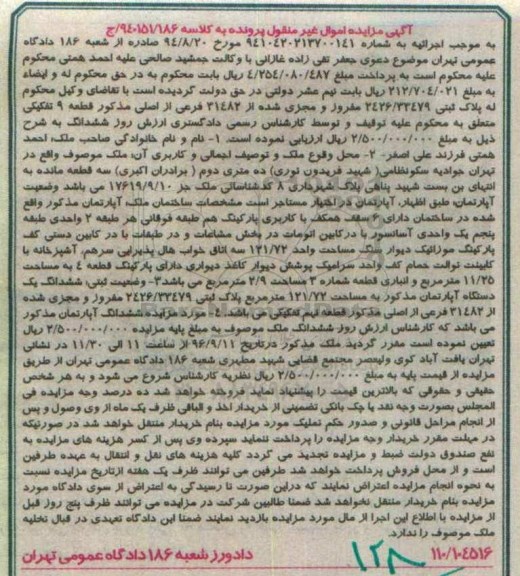 آگهی مزایده اموال غیر منقول پرونده به کلاسه ۹۴۰۱۵۱/۱۸۶/ج
به موجب اجرائیه به شماره ۹۴۱۰۴۲۰۲۱۳۷۰۰۱۴۱ مورخ ۹۴/۸/۲۰ صادره از شعبه ۱۸۶ دادگاه
عمومی تهران موضوع دعوی جعفر تقی زاده غازانی با وکالت جمشید صالحی علیه احمد همتی محکوم
علیه محکوم است به پرداخت مبلغ ۴/۲۵۴/۰۸۰/۴۸۷ ریال بابت محکوم به در حق محکوم له و ایضاء
به مبلغ ۲۱۲/۷۰۴/۰۲۱ ریال بابت نیم عشر دولتی در حق دولت گردیده است با تقاضای وکیل محکوم
له پلاک ثبتی ۲۴۲۶/۳۳۴۷۹ مفروز و مجزی شده از ۳۱۴۸۲ فرعی از اصلی مذکور قطعه ۹ تفکیکی
متعلق به محکوم علیه توقیف و توسط کارشناس رسمی دادگستری ارزش روز ششدانگ به شرح
ذیل به مبلغ ۲/۵۰۰/۰۰۰/۰۰۰ ریال ارزیابی نموده است. ۱- نام و نام خانوادگی صاحب ملک، احمد
همتی فرزند علی اصغر- ۲- محل وقوع ملک و توصیف اجمالی و کاربری آن: ملک موصوف واقع در
تهران جوادیه سکونظامی( شهید فریدون نوری) ده متری دوم ( برادران اکبری) سه قطعه مانده به
انتهای بن بست شهید پناهی پلاک شهرداری ۸ کدشناسائی ملک جز ۱۷۶۱۹/۹/۱۰ می باشد وضعیت
آپارتمان: طبق اظهار، آپارتمان در اختیار مستاجر است مشخصات ساختمان ملک: آپارتمان مذکور واقع
شده در ساختمان دارای ۶ سقف همکف با کاربری پارکینگ هم طبقه فوقانی هر طبقه ۲ واحدی طبقه
پنجم یک واحدی آسانسور با دربکابین اتومات در بخش مشاعات و در طبقات با در کابین دستی کف
پارکینگ موزائیک دیوار سنگ مساحت واحد ۱۲۱/۷۲ سه اتاق خواب هال پذیرایی سرهم. آشپزخانه با
کابینت توالت حمام کف واحد سرامیک پوشش دیوار کاغذ دیواری دارای پارکینگ قطعه ۴ به مساحت
۱۱/۲۵ مترمربع و انباری قطعه شماره ۳ مساحت ۲/۹ مترمربع می باشد.۳- وضعیت ثبتی: ششدانگ یک
دستگاه آپارتمان مذکور به مساحت ۱۲۱/۷۲ مترمربع پلاک ثبتی ۲۴۲۶/۳۳۴۷۹ مفروز و مجزی شده
از ۳۱۴۸۲ فرعی از اصلی مذکور قطعه نهم تفکیکی می باشد. ۴- مورد مزایده: ششدانگ آپارتمان مذکور
می باشد که کارشناس ارزش روز ششدانگ ملک موصوف به مبلغ پایه مزایده ۲/۵۰۰/۰۰۰/۰۰۰ ریال
تعیین نموده است مقرر گردید ملک مذکور درتاریخ ۹۶/۹/۱۱ از ساعت ۱۱ الی ۱۱/۳۰ در نشانی
تهران یافت آباد کوی ولیعصر مجتمع قضایی شهید مطهری شعبه ۱۸۶ دادگاه عمومی تهران از طریق
مزایده از قیمت پایه به مبلغ ۲/۵۰۰/۰۰۰/۰۰۰ ریال نظریه کارشناس شروع می شود و به هر شخص
حقیقی و حقوقی که بالاترین قیمت را پیشنهاد نماید فروخته خواهد شد ده درصد وجه مزایده فی
المجلس بصورت وجه نقد یا چک بانکی تضمینی از خریدار اخذ و الباقی ظرف یک ماه از وی وصول و پس
از انجام مراحل قانونی و صدور حکم تملیک مورد مزایده بنام خریدار منتقل خواهد شد در صورتیکه
در مهلت مقرر خریدار وجه مزایده را پرداخت ننماید سپرده وی پس از کسر هزینه های مزایده به
نفع صندوق دولت ضبط و مزایده تجدید می گردد کلیه هزینه های نقل و انتقال به عهده طرفین
است و از محل فروش پرداخت خواهد شد طرفین می توانند ظرف یک هفته ازتاریخ مزایده نسبت
به نحوه انجام مزایده اعتراض نمایند که دراین صورت تا رسیدگی به اعتراض از سوی دادگاه مورد
مزایده بنام خریدار منتقل نخواهد شد ضمنا طالبین شرکت در مزایده می توانند ظرف پنج روز قبل
از مزایده با اطلاع این اجرا از مال مورد مزایده بازدید نمایند ضمنا این دادگاه تعهدی در قبال تخلیه
ملک موصوف را ندارد.
۱۱۰/۱۰۴۵۱۶ دادورز شعبه ۱۸۶ دادگاه عمومی تهران
۱۲۸